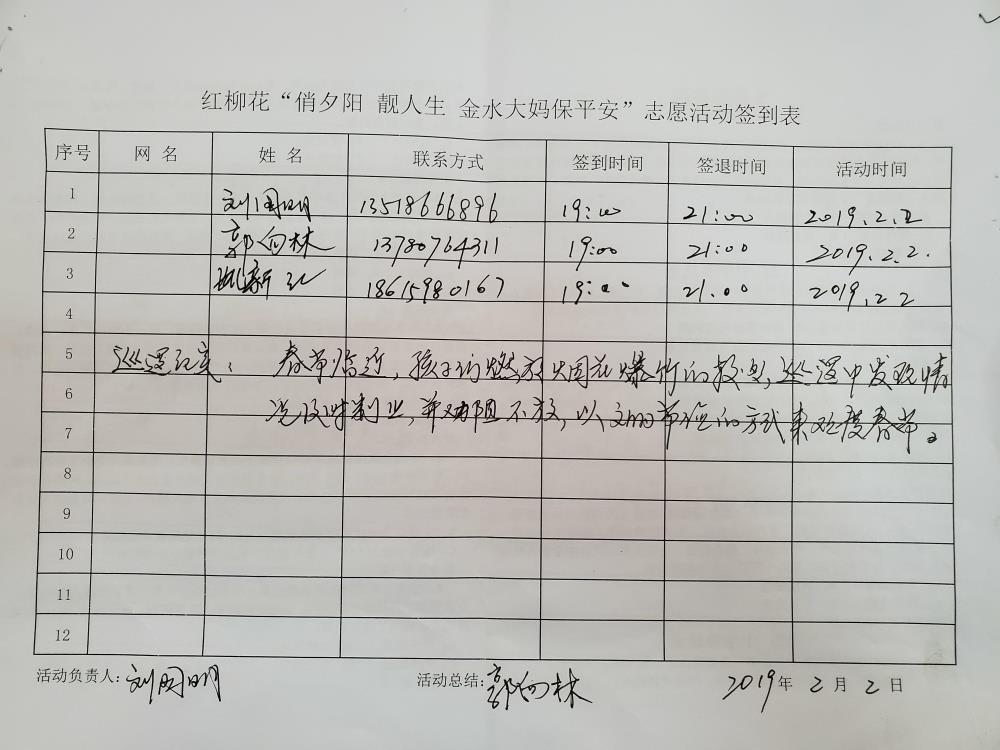 红柳花“俏夕阳 靓人生 金水大妈保平安”志愿活动签到表
序号 网 名 姓 名 联系方式 签到时间 签退时间 活动时间
1 刘国明 13518666896 19:00 21:00 2019.2.2
2 郭向林 13780764311 19:00 21:00 2019.2.2.
3 新红 18615980167 19:00 21.00 2019.2 2
4
5 巡逻纪实： 春节临近，孩子们燃放烟花爆竹的较多，巡逻中发现情
6 况及时制止，并劝阻不放，以文明节俭的方式来欢度春节。
7
8
9
10
11
12
活动负责人：刘国明 活动总结：郭向林 2019年 2月 2日